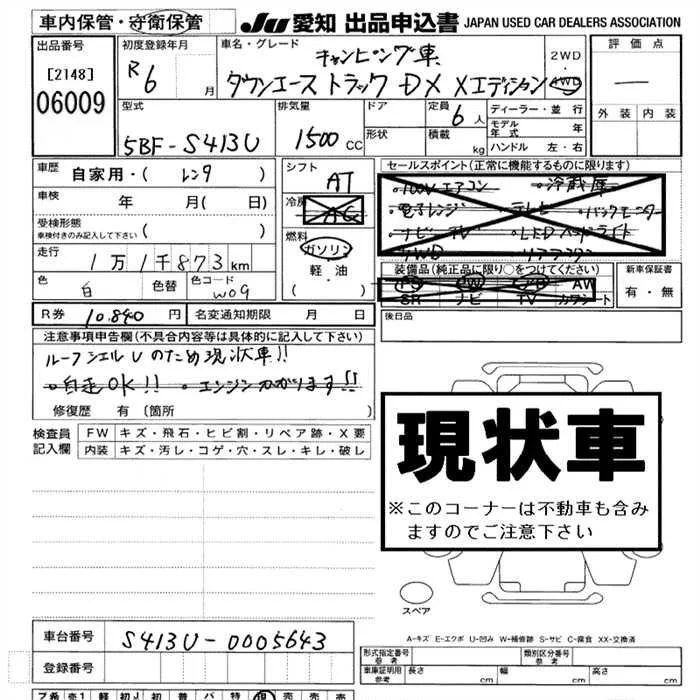 車内保管・守衛保管 JU 愛知 出品申込書 JAPAN USED CAR DEALERS ASSOCIATION
出品番号 初度登録年月 車名・グレード 評価点
[2148] R6 月 キャンピング車 2WD・4WD
06009 タウンエーストラック DX Xエディション ー
外装 内装
型式 排気量 ドア 定員 6人 ディーラー・並行
5BF-S413U 1500 CC 形状 積載 kg モデル年式 年
ハンドル 左・右
車歴 自家用・( レンタ ) シフト AT セールスポイント(正常に機能するものに限ります)
車検 年 月( 日) 冷房 AC ・100Vエアコン ・冷蔵庫
受検形態 ( ) ・電子レンジ ・テレビ ・バックモニター
車検付きのみ記入して下さい 燃料 ・ナビ・TV ・LEDヘッドライト
走行 1万1千873km ガソリン ・4WD
軽・油 装備品(純正品に限り○をつけてください) 新車保証書
色 白 色替 色コード W09 ( ) PS PW AB AW 有・無
SR ナビ TV カワシート
R券 10,840 円 名変通知期限 月 日 後日品
注意事項申告欄(不具合内容等は具体的に記入して下さい)
ルーフシェルUのため現状車!!
・自走OK!! ・エンジンかかります!!
修復歴 有 (箇所 )
検査員記入欄 FW キズ・飛石・ヒビ割・リペア跡・X要
内装 キズ・汚し・コゲ・穴・スレ・キレ・破し
現状車
※このコーナーは不動車も含みますのでご注意下さい
スペア
A-キズ E-エクボ U-凹み W-補修跡 S-サビ C-腐食 XX-交換済
車台番号 S413U-0005643 形式指定番号 参考 類別区分番号 参考
登録番号 車庫証明用 参考 長さ cm 幅 cm 高さ cm